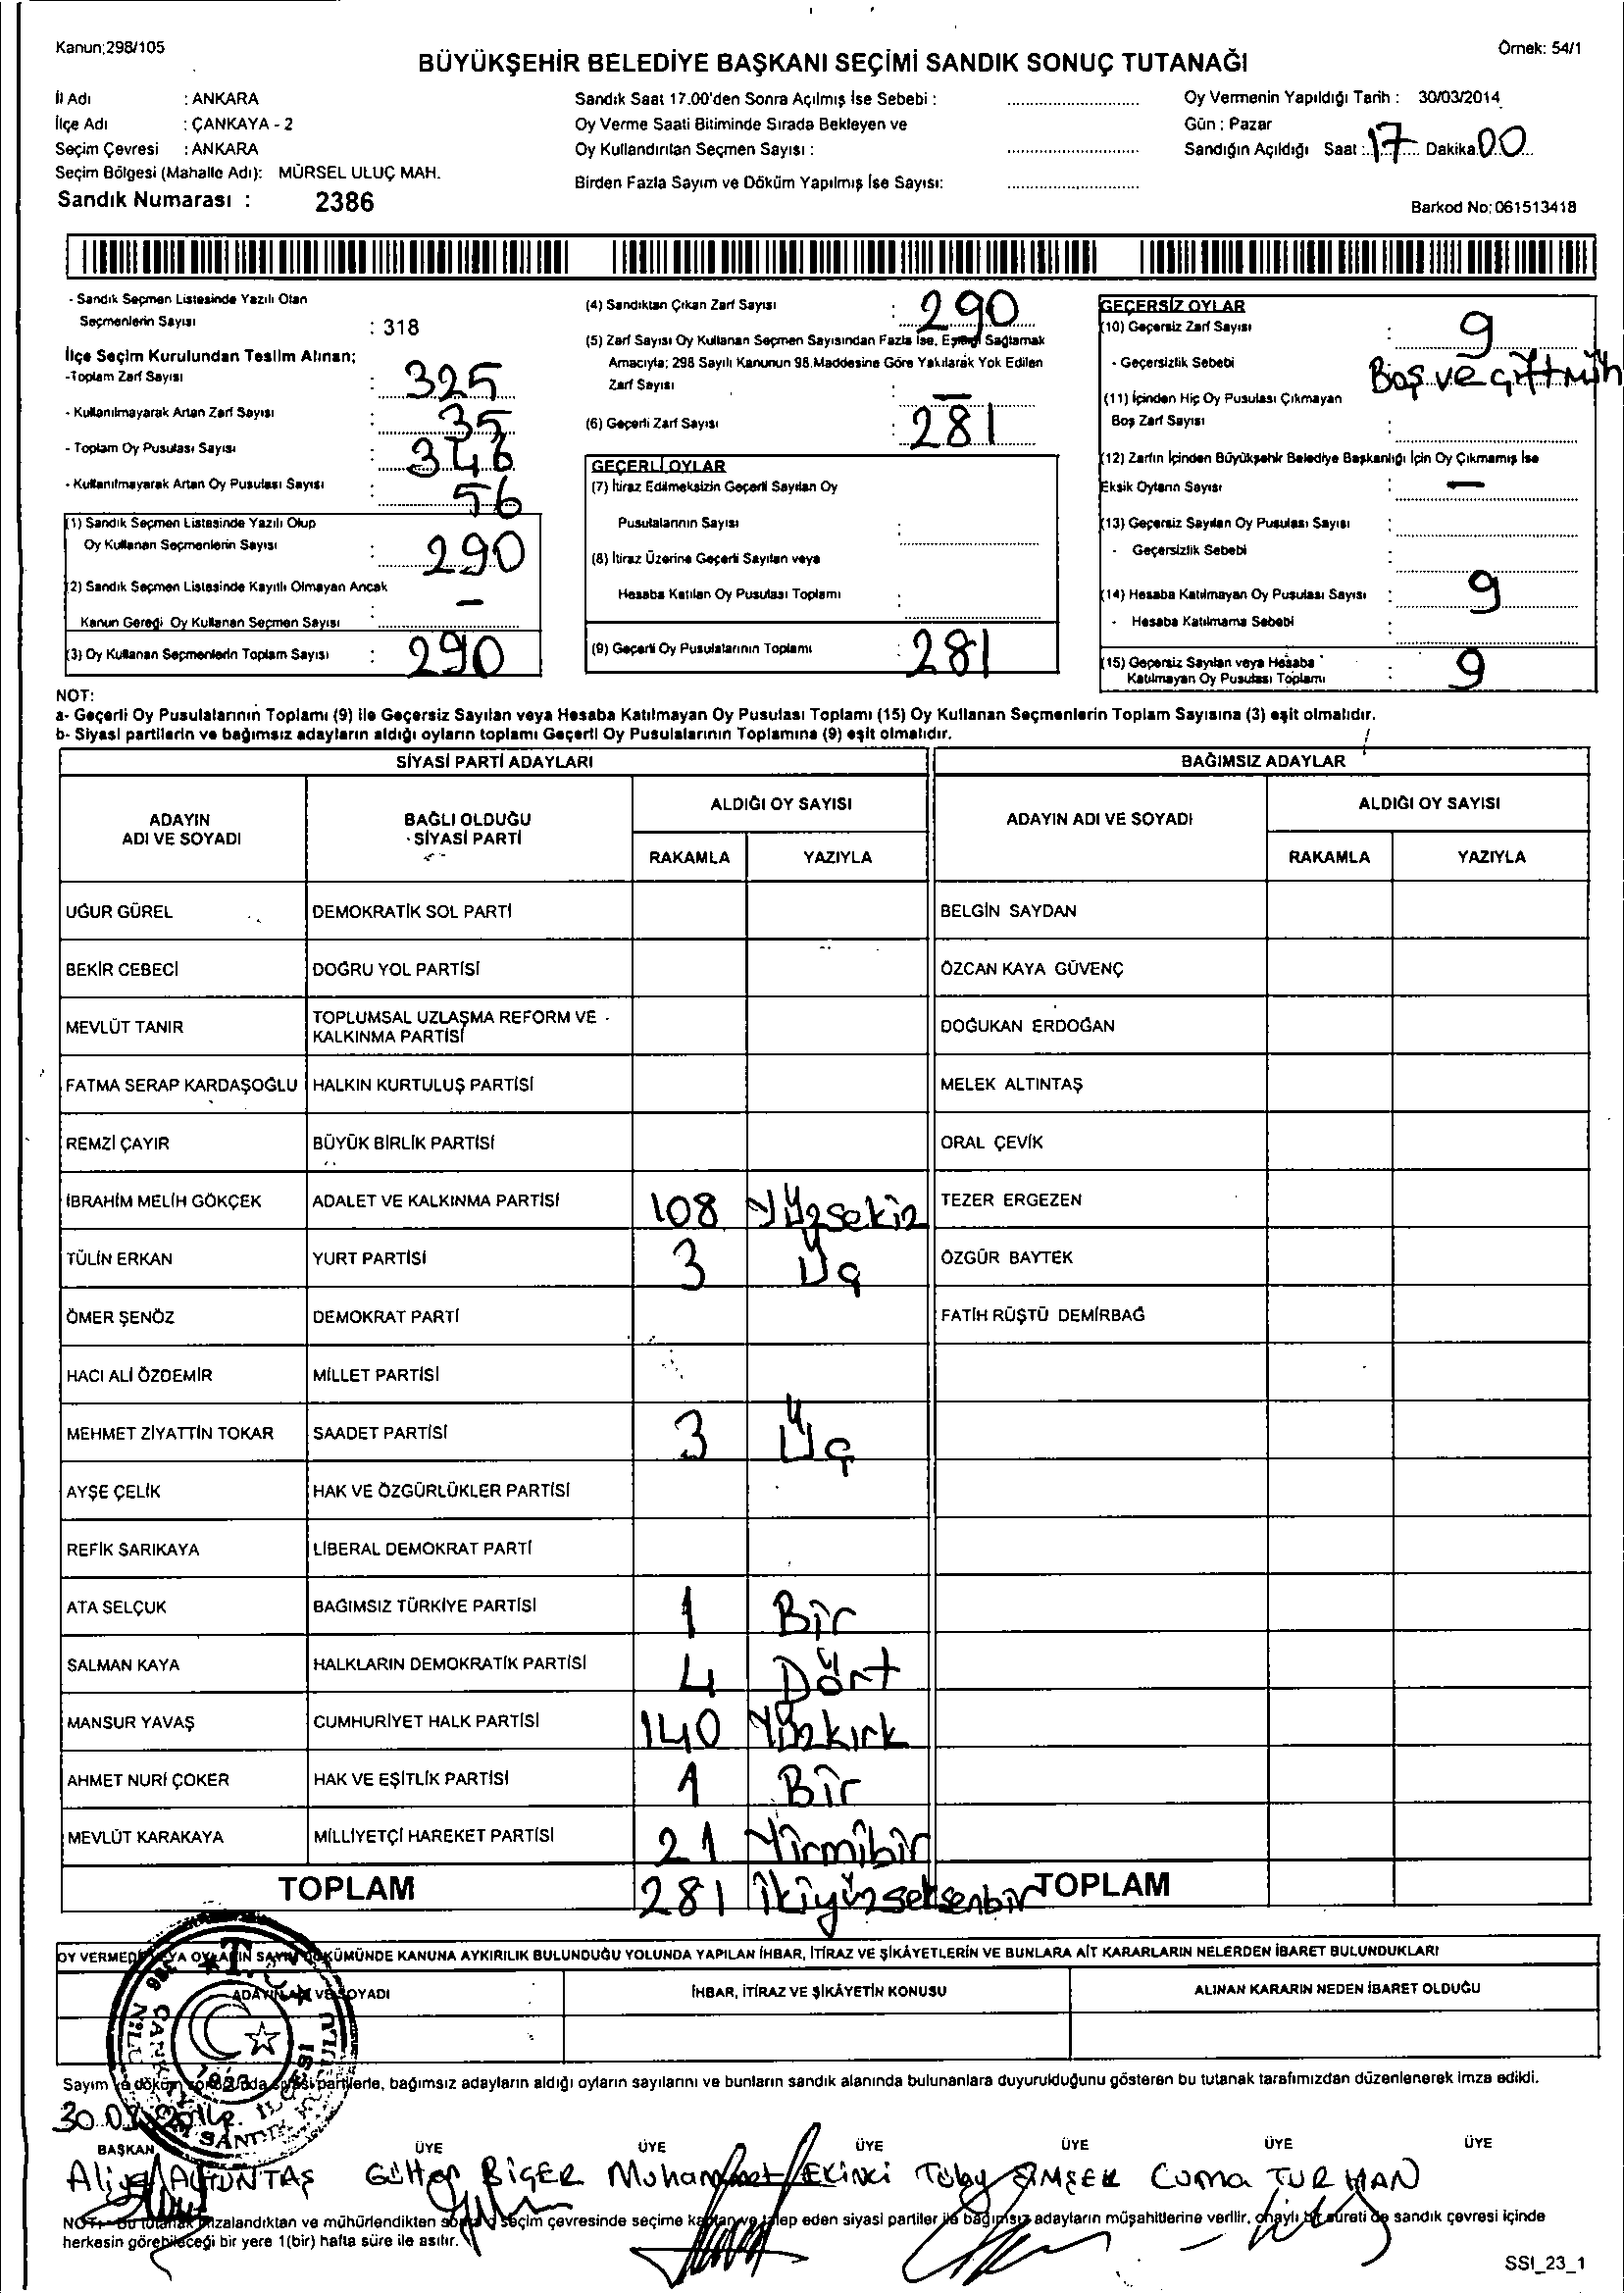 Kanun;298/105
Örnek: 54/1
BÜYÜKŞEHİR BELEDİYE BAŞKANI SEÇİMİ SANDIK SONUÇ TUTANAĞI
İl Adı : ANKARA
İlçe Adı : ÇANKAYA - 2
Seçim Çevresi : ANKARA
Seçim Bölgesi (Mahalle Adı): MÜRSEL ULUÇ MAH.
Sandık Numarası : 2386
Sandık Saat 17.00'den Sonra Açılmış İse Sebebi :
Oy Verme Saati Bitiminde Sırada Bekleyen ve
Oy Kullandırılan Seçmen Sayısı :
Birden Fazla Sayım ve Döküm Yapılmış İse Sayısı:
Oy Vermenin Yapıldığı Tarih : 30/03/2014
Gün : Pazar
Sandığın Açıldığı Saat : 17 Dakika 00
Barkod No: 061513418
- Sandık Seçmen Listesinde Yazılı Olan
Seçmenlerin Sayısı : 318
İlçe Seçim Kurulundan Teslim Alınan;
-Toplam Zarf Sayısı : 325
- Kullanılmayarak Artan Zarf Sayısı : 35
- Toplam Oy Pusulası Sayısı : 346
- Kullanılmayarak Artan Oy Pusulası Sayısı : 56
(1) Sandık Seçmen Listesinde Yazılı Olup
Oy Kullanan Seçmenlerin Sayısı : 290
(2) Sandık Seçmen Listesinde Kayıtlı Olmayan Ancak
Kanun Gereği Oy Kullanan Seçmen Sayısı : -
(3) Oy Kullanan Seçmenlerin Toplam Sayısı : 290
(4) Sandıktan Çıkan Zarf Sayısı : 290
(5) Zarf Sayısı Oy Kullanan Seçmen Sayısından Fazla İse, Eşitliği Sağlamak
Amacıyla; 298 Sayılı Kanunun 98.Maddesine Göre Yakılarak Yok Edilen
Zarf Sayısı : -
(6) Geçerli Zarf Sayısı : 281
GEÇERLİ OYLAR
(7) İtiraz Edilmeksizin Geçerli Sayılan Oy
Pusulalarının Sayısı :
(8) İtiraz Üzerine Geçerli Sayılan veya
Hesaba Katılan Oy Pusulası Toplamı :
(9) Geçerli Oy Pusulalarının Toplamı : 281
GEÇERSİZ OYLAR
(10) Geçersiz Zarf Sayısı : 9
- Geçersizlik Sebebi Boş ve çift müh
(11) İçinden Hiç Oy Pusulası Çıkmayan
Boş Zarf Sayısı :
(12) Zarfın İçinden Büyükşehir Belediye Başkanlığı İçin Oy Çıkmamış İse
Eksik Oyların Sayısı : -
(13) Geçersiz Sayılan Oy Pusulası Sayısı :
- Geçersizlik Sebebi :
(14) Hesaba Katılmayan Oy Pusulası Sayısı : 9
- Hesaba Katılmama Sebebi :
(15) Geçersiz Sayılan veya Hesaba
Katılmayan Oy Pusulası Toplamı : 9
NOT:
a- Geçerli Oy Pusulalarının Toplamı (9) ile Geçersiz Sayılan veya Hesaba Katılmayan Oy Pusulası Toplamı (15) Oy Kullanan Seçmenlerin Toplam Sayısına (3) eşit olmalıdır.
b- Siyasi partilerin ve bağımsız adayların aldığı oyların toplamı Geçerli Oy Pusulalarının Toplamına (9) eşit olmalıdır.
SİYASİ PARTİ ADAYLARI
BAĞIMSIZ ADAYLAR
ADAYIN
ADI VE SOYADI
BAĞLI OLDUĞU
SİYASİ PARTİ
ALDIĞI OY SAYISI
RAKAMLA YAZIYLA
ADAYIN ADI VE SOYADI
ALDIĞI OY SAYISI
RAKAMLA YAZIYLA
UĞUR GÜREL DEMOKRATİK SOL PARTİ BELGİN SAYDAN
BEKİR CEBECİ DOĞRU YOL PARTİSİ ÖZCAN KAYA GÜVENÇ
MEVLÜT TANIR TOPLUMSAL UZLAŞMA REFORM VE
KALKINMA PARTİSİ DOĞUKAN ERDOĞAN
FATMA SERAP KARDAŞOĞLU HALKIN KURTULUŞ PARTİSİ MELEK ALTINTAŞ
REMZİ ÇAYIR BÜYÜK BİRLİK PARTİSİ ORAL ÇEVİK
İBRAHİM MELİH GÖKÇEK ADALET VE KALKINMA PARTİSİ 108 Yüzsekiz TEZER ERGEZEN
TÜLİN ERKAN YURT PARTİSİ 3 Üç ÖZGÜR BAYTEK
ÖMER ŞENÖZ DEMOKRAT PARTİ FATİH RÜŞTÜ DEMİRBAĞ
HACI ALİ ÖZDEMİR MİLLET PARTİSİ
MEHMET ZİYATTİN TOKAR SAADET PARTİSİ 3 Üç
AYŞE ÇELİK HAK VE ÖZGÜRLÜKLER PARTİSİ
REFİK SARIKAYA LİBERAL DEMOKRAT PARTİ
ATA SELÇUK BAĞIMSIZ TÜRKİYE PARTİSİ 1 Bir
SALMAN KAYA HALKLARIN DEMOKRATİK PARTİSİ 4 Dört
MANSUR YAVAŞ CUMHURİYET HALK PARTİSİ 140 Yüzkırk
AHMET NURİ ÇOKER HAK VE EŞİTLİK PARTİSİ 1 Bir
MEVLÜT KARAKAYA MİLLİYETÇİ HAREKET PARTİSİ 21 Yirmibir
TOPLAM 281 İkiyüzseksenbir TOPLAM
OY VERMEDE VEYA OYLARIN SAYIM DÖKÜMÜNDE KANUNA AYKIRILIK BULUNDUĞU YOLUNDA YAPILAN İHBAR, İTİRAZ VE ŞİKÂYETLERİN VE BUNLARA AİT KARARLARIN NELERDEN İBARET BULUNDUKLARI
ADAYIN ADI VE SOYADI İHBAR, İTİRAZ VE ŞİKÂYETİN KONUSU ALINAN KARARIN NEDEN İBARET OLDUĞU
Sayım ve döküm sonucunda siyasi partilerle, bağımsız adayların aldığı oyların sayılarını ve bunların sandık alanında bulunanlara duyurulduğunu gösteren bu tutanak tarafımızdan düzenlenerek imza edildi.
30.03.2014
BAŞKAN ÜYE ÜYE ÜYE ÜYE ÜYE ÜYE
ALTUNTAŞ Gülten BİÇER Muhammet EKİNCİ ŞİMŞEK Cuma TURHAN
NOT:- Bu tutanak imzalandıktan ve mühürlendikten sonra seçim çevresinde seçime katılan ve talep eden siyasi partiler ile bağımsız adayların müşahitlerine verilir, onaylı bir sureti de sandık çevresi içinde
herkesin görebileceği bir yere 1(bir) hafta süre ile asılır.
SSI_23_1